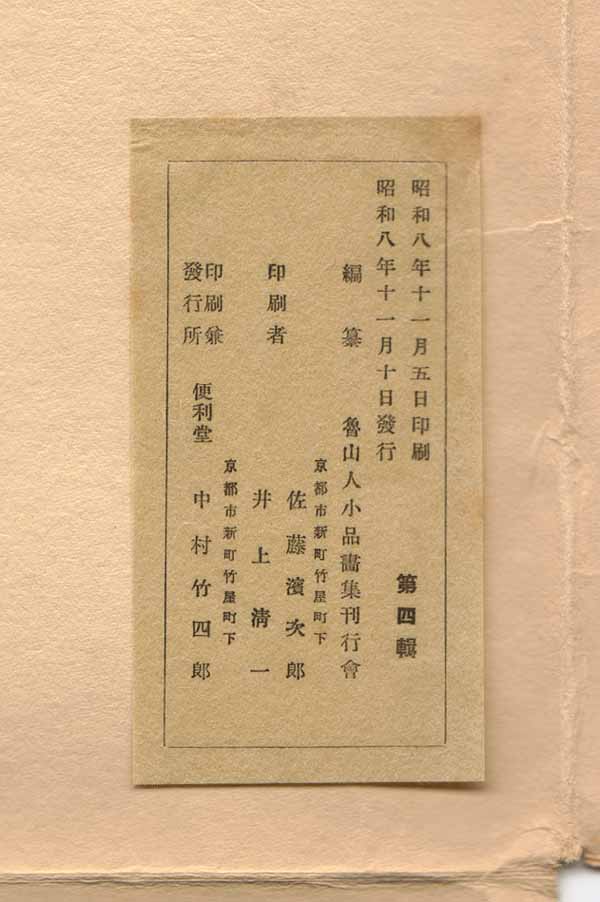 昭和八年十一月五日印刷
昭和八年十一月十日發行
第四輯
編纂 魯山人小品畵集刊行會
京都市新町竹屋町下
印刷者 佐藤濱次郎
井上清一
京都市新町竹屋町下
印刷兼
發行所 便利堂 中村竹四郎